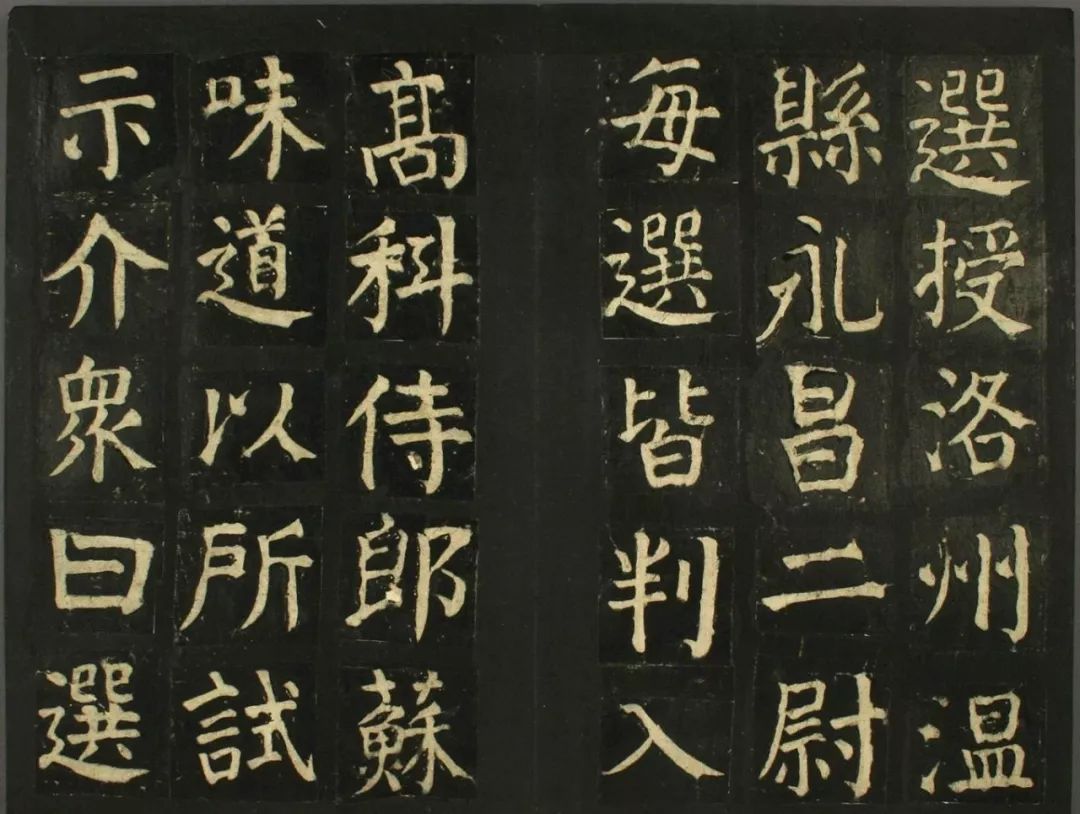 選授洛州温
縣永昌二尉
每選皆判入
髙科侍郎蘇
味道以所試
示介衆曰選